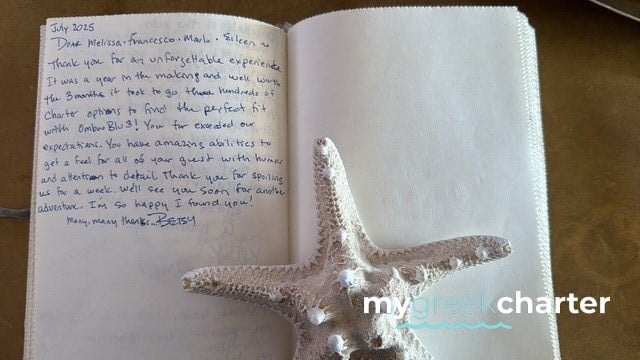 July 2025
Dear Melissa · Francesco · Marlo · Eileen ~
Thank you for an unforgettable experience
It was a year in the making and well worth
the 3 months it took to go through hundreds of
Charter options to find the perfect fit
with Ombre Blu 3! You far exceeded our
expectations. You have amazing abilities to
get a feel for all of your guest with humor
and attention to detail. Thank you for spoiling
us for a week. We'll see you soon for another
adventure. I'm so happy I found you!
Many, many thanks... Betsy
mygreekcharter